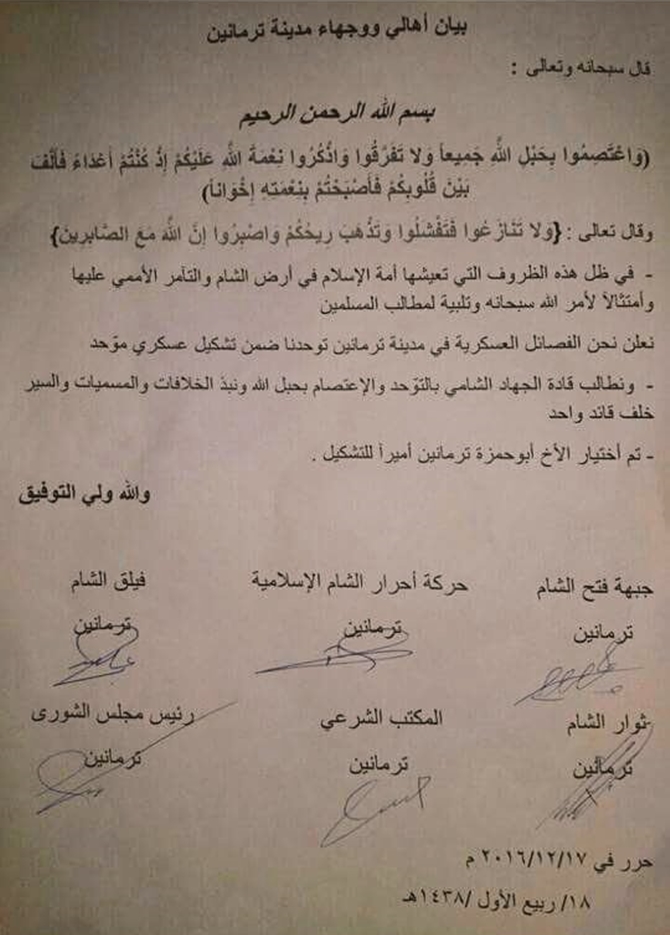 بيان أهالي ووجهاء مدينة ترمانين
قال سبحانه وتعالى :
بسم الله الرحمن الرحيم
(وَاعْتَصِمُوا بِحَبْلِ اللَّهِ جَمِيعاً وَلا تَفَرَّقُوا وَاذْكُرُوا نِعْمَةَ اللَّهِ عَلَيْكُمْ إِذْ كُنْتُمْ أَعْدَاءً فَأَلَّفَ
بَيْنَ قُلُوبِكُمْ فَأَصْبَحْتُمْ بِنِعْمَتِهِ إِخْوَاناً)
وقال تعالى : {وَلا تَنَازَعُوا فَتَفْشَلُوا وَتَذْهَبَ رِيحُكُمْ وَاصْبِرُوا إِنَّ اللَّهَ مَعَ الصَّابِرِين}
- في ظل هذه الظروف التي تعيشها أمة الإسلام في أرض الشام والتآمر الأممي عليها
وأمتثالاً لأمر الله سبحانه وتلبية لمطالب المسلمين
نعلن نحن الفصائل العسكرية في مدينة ترمانين توحدنا ضمن تشكيل عسكري موّحد
- ونطالب قادة الجهاد الشامي بالتوّحد والإعتصام بحبل الله ونبذ الخلافات والمسميات والسير
خلف قائد واحد
- تم أختيار الأخ أبوحمزة ترمانين أميراً للتشكيل .
والله ولي التوفيق
جبهة فتح الشام حركة أحرار الشام الإسلامية فيلق الشام
ترمانين ترمانين ترمانين
ثوار الشام المكتب الشرعي رئيس مجلس الشورى
ترمانين ترمانين ترمانين
حرر في ٢٠١٦/١٢/١٧ م
١٨/ ربيع الأول /١٤٣٨هـ